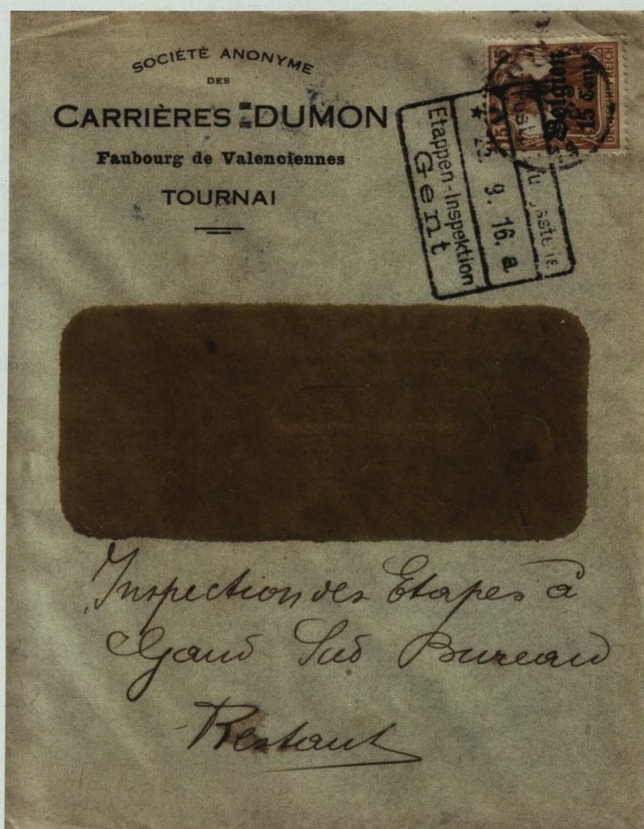 SOCIÉTÉ ANONYME
DES
CARRIÈRES=DUMON
Faubourg de Valenciennes
TOURNAI
Belgien
15 Cent.
Etappen-Inspektion
Gent
9. 16. a
Inspection des Etapes à
Gand Sud Bureau
Restant